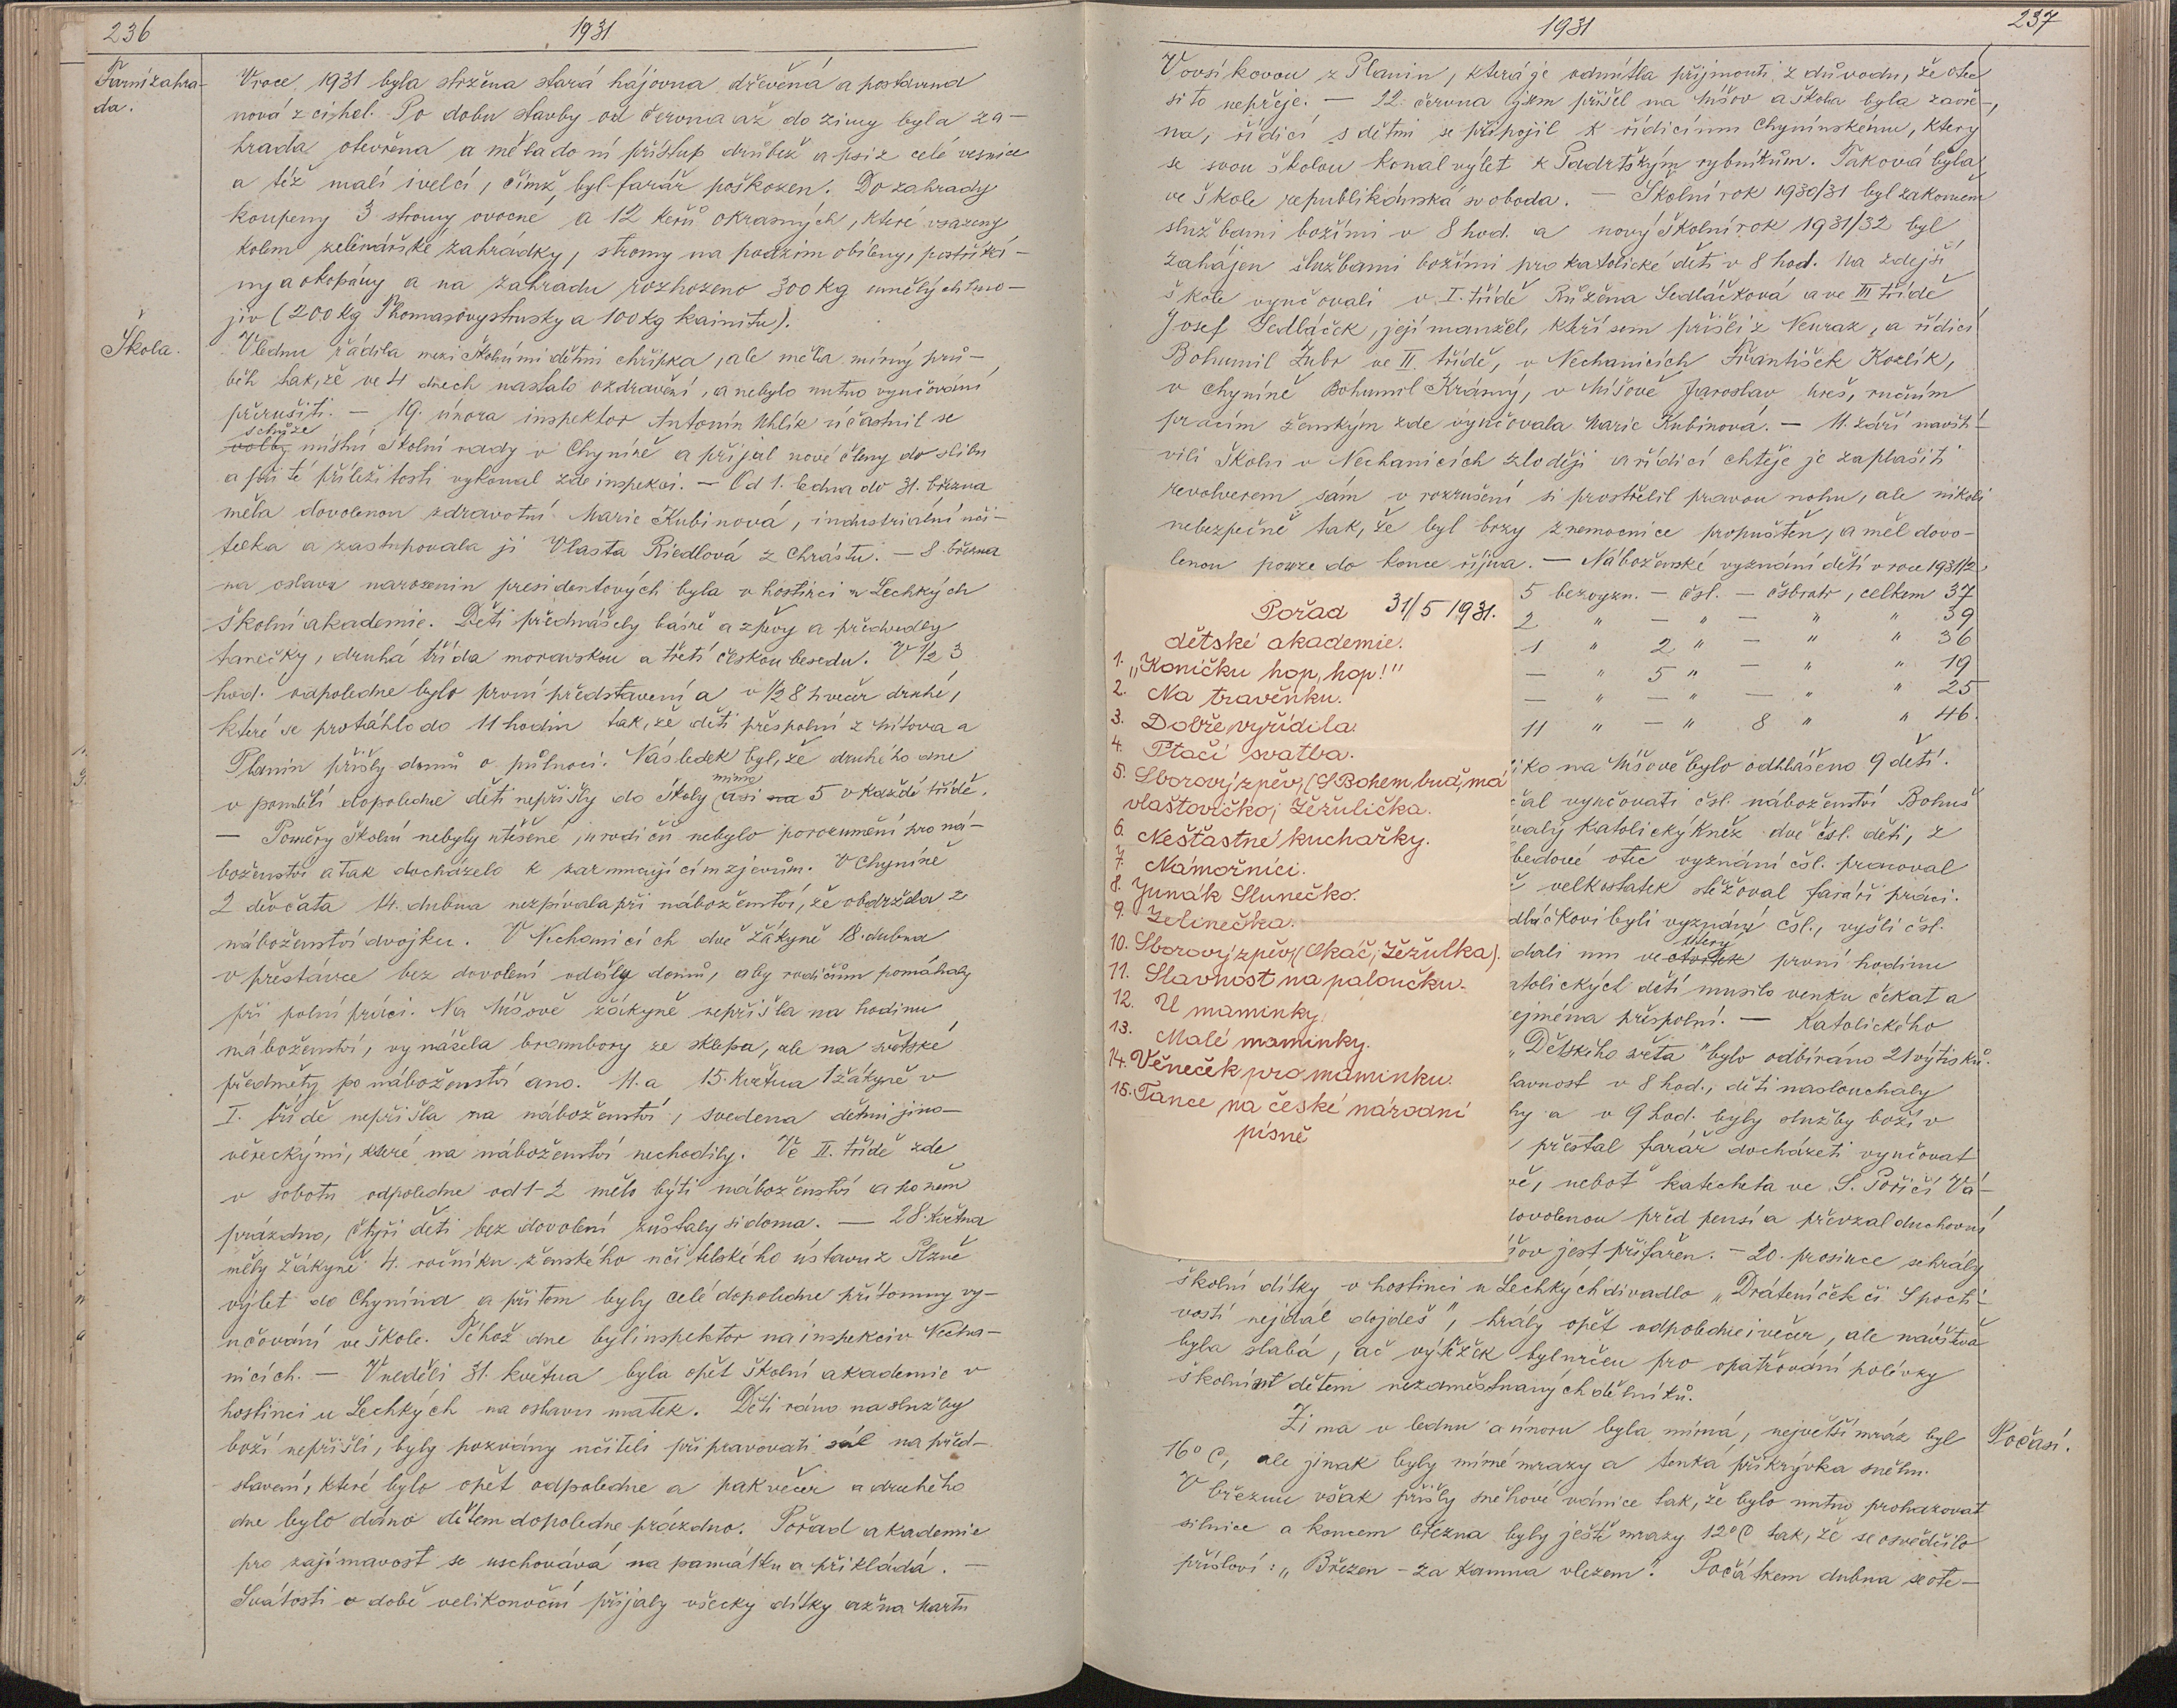 236
1931
Farní zahra-
da.
V roce 1931 byla stržena stará hájovna dřevěná a postavena
nová z cihel. Po dobu stavby od června až do zimy byla za-
hrada otevřena a měla do ní přístup drůbež a psi z celé vesnice
a též malí i velcí, čímž byl farář poškozen. Do zahrady
koupeny 3 stromy ovocné a 12 keřů okrasných, které vsazeny
kolem zelinářské zahrádky, stromy na podzim obíleny, postříká-
ny a okopány a na zahradu rozhozeno 300 kg umělých hno-
jiv (200 kg Thomasovy strusky a 100 kg kainitu).
Škola.
V lednu řádila mezi školními dětmi chřipka, ale měla mírný prů-
běh tak, že ve 4 dnech nastalo ozdravění, a nebylo nutno vyučování
přerušiti. — 19. února inspektor Antonín Uhlík účastnil se
schůze
volby místní školní rady v Chyníně a přijal nové členy do slibu
a při té příležitosti vykonal zde inspekci. — Od 1. ledna do 31. března
měla dovolenou zdravotní Marie Kubinová, industriální uči-
telka a zastupovala ji Vlasta Riedlová z Chrástu. — 8. března
na oslavu narozenin presidentových byla v hostinci u Lechkých
školní akademie. Děti přednášely básně a zpěvy a předvedly
tanečky, druhá třída moravskou a třetí českou besedu. V 1/2 3
hod. odpoledne bylo první představení a v 1/2 8 h večer druhé,
které se protáhlo do 11 hodin tak, že děti přespolní z Mítova a
Planin přišly domů o půlnoci. Následek byl, že druhého dne
v pondělí dopoledne děti nepřišly do školy
mimo
asi na 5 v každé třídě.
— Poměry školní nebyly utěšené, u rodičů nebylo porozumění pro ná-
boženství a tak docházelo k zarmucujícím zjevům. V Chyníně
2 děvčata 14. dubna nezpívala při náboženství, že obdržela z
náboženství dvojku. V Nechanicích dvě žákyně 18. dubna
v přestávce bez dovolení odešly domů, aby rodičům pomáhaly
při polní práci. Na Míšově žákyně nepřišla na hodinu
náboženství, vynášela brambory ze sklepa, ale na světské
předměty po náboženství ano. 11. a 15. května 1 žákyně v
I. třídě nepřišla na náboženství, svedena dětmi jino-
věreckými, které na náboženství nechodily. Ve II. třídě zde
v sobotu odpoledne od 1-2 mělo býti náboženství a po něm
prázdno, čtyři děti bez dovolení zůstaly si doma. — 28. května
měly žákyně 4. ročníku ženského učitelského ústavu z Plzně
výlet do Chynína a při tom byly celé dopoledne přítomny vy-
učování ve škole. Téhož dne byl inspektor na inspekci v Necha-
nicích. — V neděli 31. května byla opět školní akademie v
hostinci u Lechkých na oslavu matek. Děti ráno na služby
boží nepřišli, byly pozvány učiteli připravovati sál na před-
stavení, které bylo opět odpoledne a pak večer a druhého
dne bylo dáno dětem dopoledne prázdno. Pořad akademie
pro zajímavost se uschovává na památku a přikládá. —
Svátosti v době velikonoční přijaly všecky dítky až na Martu
1931
237
Vovsíkovou z Planin, která je odmítla přijmouti z důvodu, že otec
si to nepřeje. — 22. června jsem přišel na Míšov a škola byla zavře-
na, řídicí s dětmi se připojil k řídicímu chynínskému, který
se svou školou konal výlet k Padrtským rybníkům. Taková byla
ve škole republikánská svoboda. — Školní rok 1930/31 byl zakončen
službami božími v 8 hod. a nový školní rok 1931/32 byl
zahájen službami božími pro katolické děti v 8 hod. Na zdejší
škole vyučovali v I. třídě Růžena Sedláčková a ve III třídě
Josef Sedláček, její manžel, kteří sem přišli z Neuraz, a řídicí
Bohumil Zubr ve II. třídě, v Nechanicích František Kozlík,
v Chyníně Bohumil Krásný, v Míšově Jaroslav Ureš, ručním
pracím ženským zde vyučovala Marie Kubinová. — 11. září navští-
vili školu v Nechanicích zloději a řídicí chtěje je zaplašiti
revolverem sám v rozrušení si prostřelil pravou nohu, ale nikoli
nebezpečně tak, že byl brzy z nemocnice propuštěn, a měl dovo-
lenou pouze do konce října. — Náboženské vyznání dětí v roce 1931/2:
5 bezvyzn. — čsl. — čsbratr, celkem 37
2 " — " — " " 39
1 " 2 " — " " 36
— " 5 " — " " 19
— " — " — " " 25
11 " — " 8 " " 46.
Pořad 31/5 1931.
dětské akademie.
1. „Koníčku hop, hop!"
2. Na travěnku.
3. Dobře vyřídila.
4. Ptačí svatba.
5. Sborový zpěv, (S Bohem buď, má
vlaštovičko; Žežulička.
6. Nešťastné kuchařky.
7. Námořníci.
8. Junák Slunečko.
9. Zelinečka.
10. Sborový zpěv, (Okáč; Žežulka).
11. Slavnost na paloučku.
12. U maminky.
13. Malé maminky.
14. Věneček pro maminku.
15. Tance na české národní
písně
liko na Míšově bylo odhlášeno 9 dětí.
čal vyučovati čsl. náboženství Bohuš
valý katolický kněz dvě čsl. děti, z
otec vyznání čsl. pracoval
velkostatek stěžoval faráři práci.
dláčkovi byli vyznání čsl., vyšli čsl.
dali mu ve
úterý
čtvrtek první hodinu
atolických dětí musilo venku čekat a
ejména přespolní. — Katolického
„Dětského světa" bylo odbíráno 21 výtisků.
lavnost v 8 hod., děti naslouchaly
hy a v 9 hod. byly služby boží v
přestal farář docházeti vyučovat
vě, neboť katecheta ve S. Poříčí Vá-
dovolenou před pensí a převzal duchovní
šov jest přifařen. — 20. prosince sehrály
školní dítky v hostinci u Lechkých divadlo „Dráteníček či S pocti-
vostí nejdál dojdeš", hrály opět odpoledne i večer, ale návštěva
byla slabá, ač výtěžek byl určen pro opatřování polívky
školním dětem nezaměstnaných dělníků.
Počasí.
Zima v lednu a únoru byla mírná, největší mráz byl
16° C, ale jinak byly mírné mrazy a tenká přikrývka sněhu.
V březnu však přišly sněhové vánice tak, že bylo nutno prohazovat
silnice a koncem března byly ještě mrazy 12° C tak, že se osvědčilo
přísloví: „Březen - za kamna vlezem". Počátkem dubna se ote-